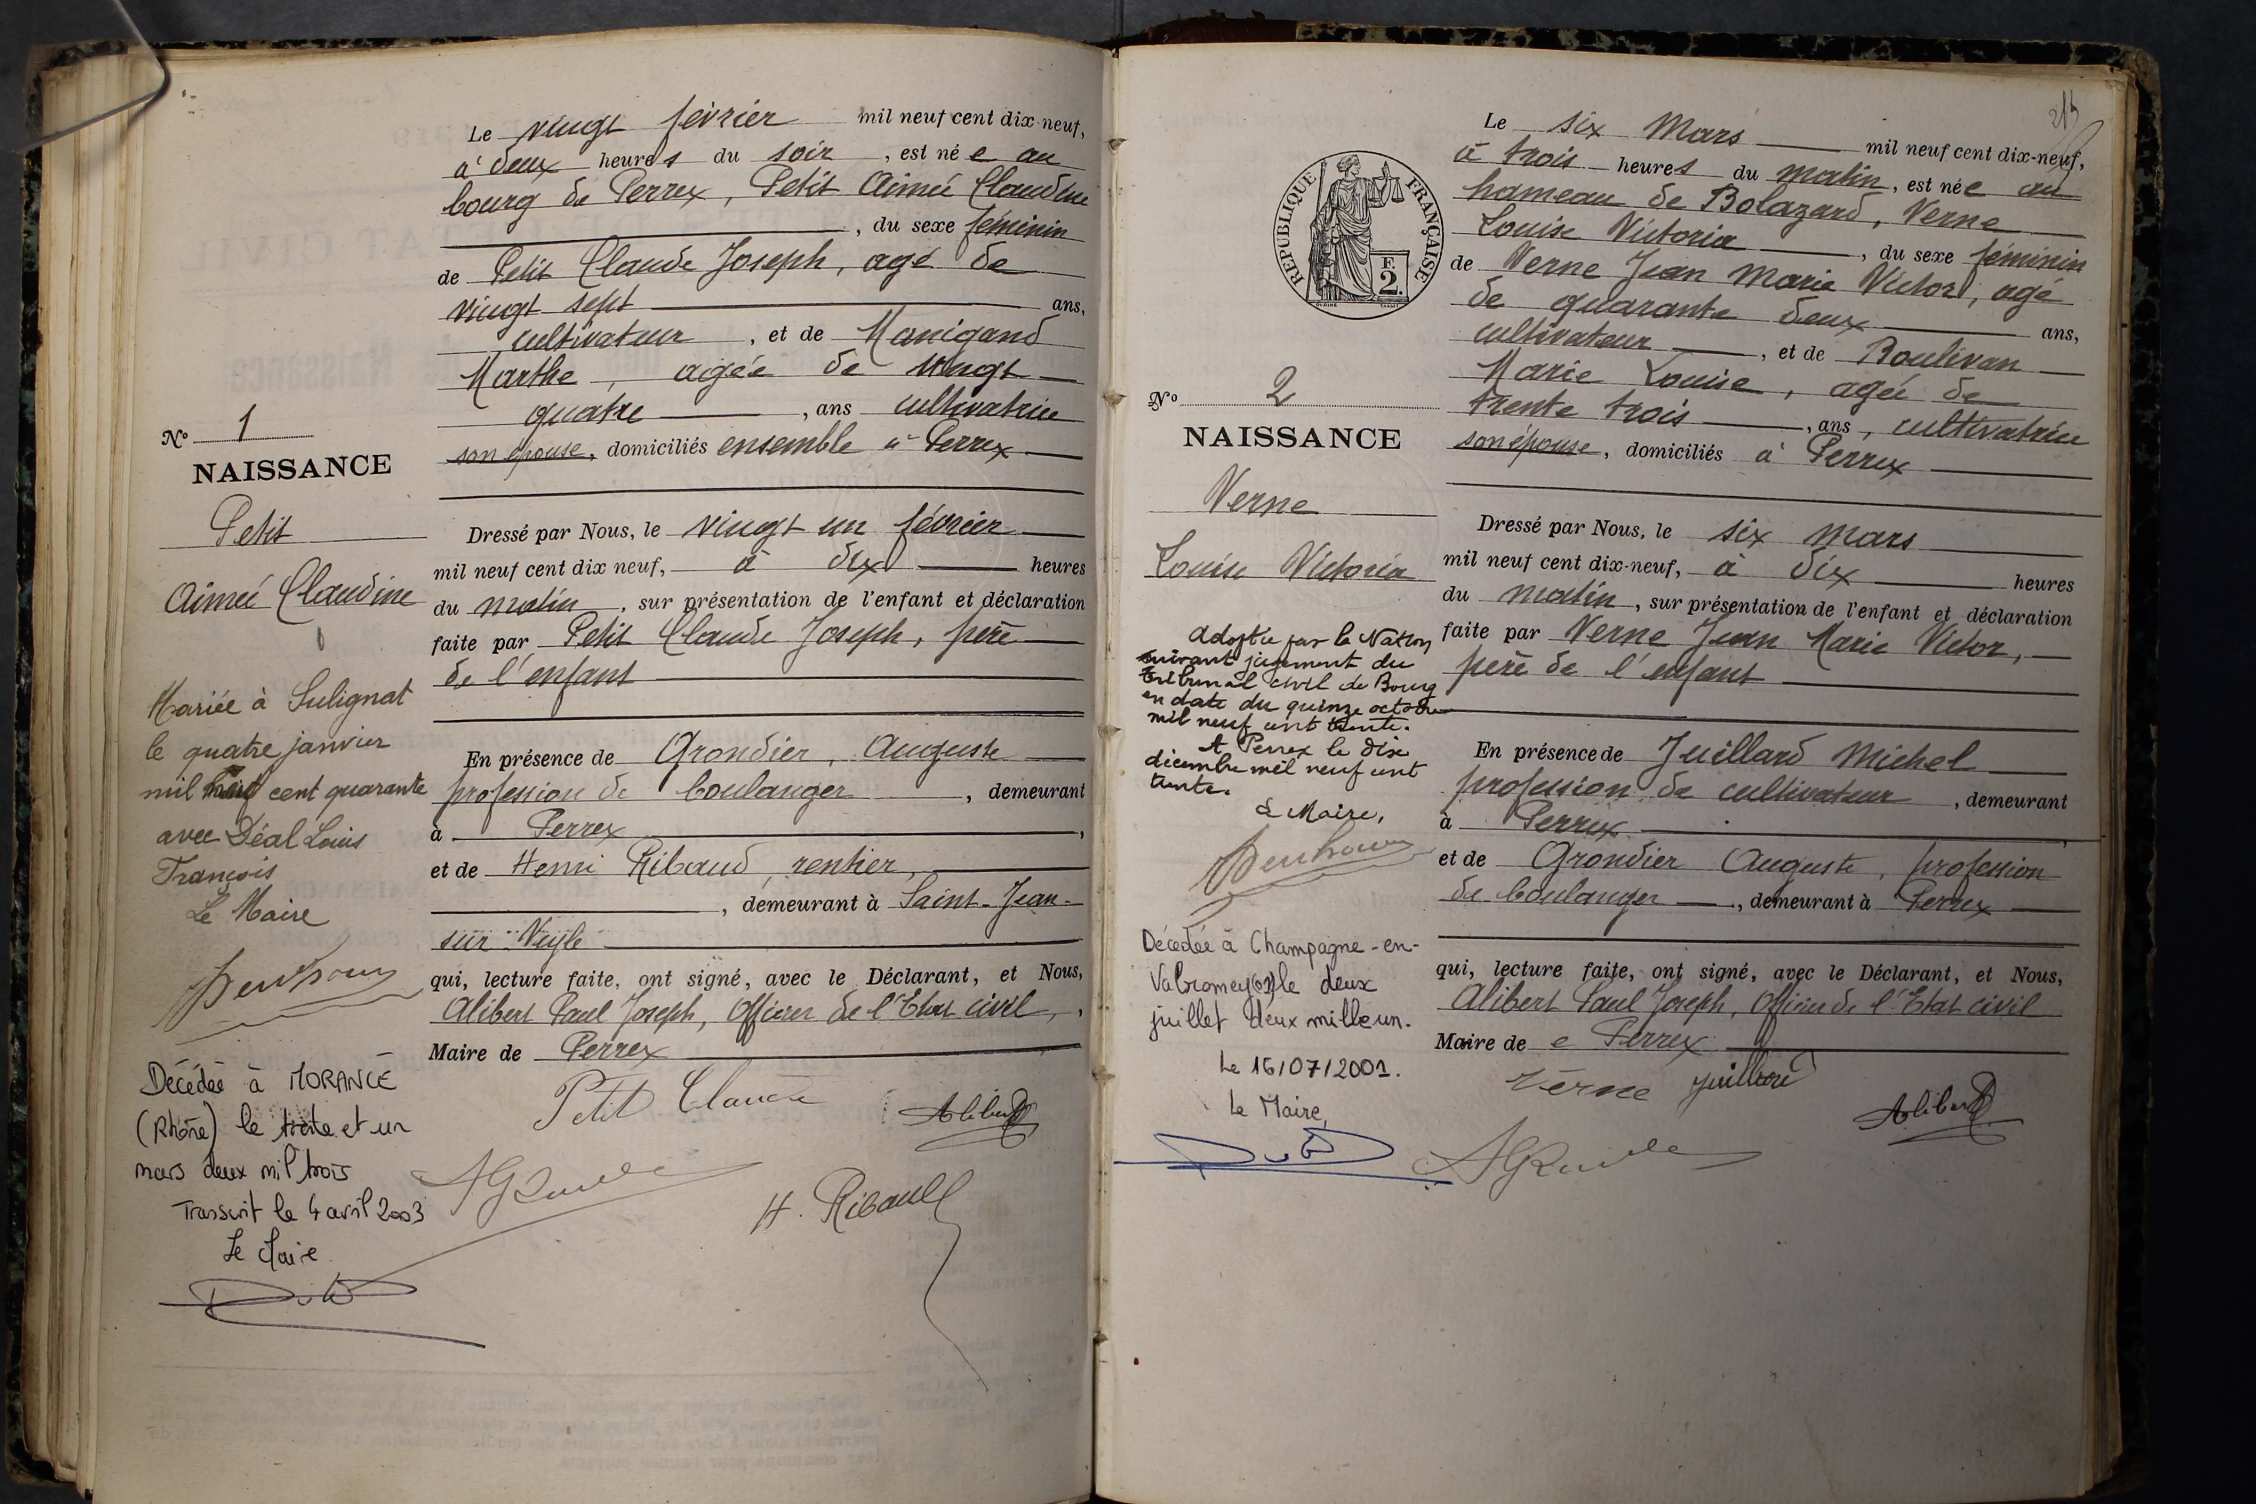 Le vingt février mil neuf cent dix-neuf,
à deux heures du soir, est née au
bourg de Perrex, Petit Aimée Claudine
, du sexe féminin
de Petit Claude Joseph, agé de
vingt sept ans,
cultivateur, et de Manigand
Marthe, agée de vingt
quatre, ans cultivatrice
son épouse, domiciliés ensemble à Perrex
No 1
NAISSANCE
Petit
Aimée Claudine
Dressé par Nous, le vingt un février
mil neuf cent dix neuf, à dix heures
du matin, sur présentation de l'enfant et déclaration
faite par Petit Claude Joseph, père
de l'enfant
Mariée à Sulignat
le quatre janvier
mil neuf cent quarante
avec Déal Louis
François
Le Maire
En présence de Grondier, Auguste
profession de boulanger, demeurant
à Perrex,
et de Henri Ribaud, rentier,
, demeurant à Saint-Jean-
sur-Veyle
qui, lecture faite, ont signé, avec le Déclarant, et Nous,
Alibert Paul Joseph, Officier de l'Etat civil,
Maire de Perrex
Décédée à MORANCÉ
(Rhône) le trente et un
mars deux mil trois
Transcrit le 4 avril 2003
Le Maire
Petit Claude
Alibert
H. Ribaud
215
Le six Mars mil neuf cent dix-neuf,
à trois heures du matin, est née au
hameau de Bolazard, Verne
Louise Victoria, du sexe féminin
de Verne Jean Marie Victor, agé
de quarante deux ans,
cultivateur, et de Boulivan
Marie Louise, agée de
trente trois, ans, cultivatrice
son épouse, domiciliés à Perrex
RÉPUBLIQUE FRANÇAISE
F.
2.
No 2
NAISSANCE
Verne
Louise Victoria
Dressé par Nous, le six Mars
mil neuf cent dix-neuf, à dix heures
du matin, sur présentation de l'enfant et déclaration
faite par Verne Jean Marie Victor,
père de l'enfant
Adoptée par la Nation
suivant jugement du
Tribunal civil de Bourg
en date du quinze octobre
mil neuf cent trente.
A Perrex le dix
décembre mil neuf cent
trente.
Le Maire,
En présence de Juillard Michel
profession de cultivateur, demeurant
à Perrex
et de Grondier Auguste, profession
de boulanger, demeurant à Perrex
qui, lecture faite, ont signé, avec le Déclarant, et Nous,
Alibert Paul Joseph, Officier de l'Etat civil
Maire de Perrex
Décédée à Champagne-en-
Valromey (01) le deux
juillet deux mille un.
Le 16/07/2001.
Le Maire,
Verne Juillard
Alibert